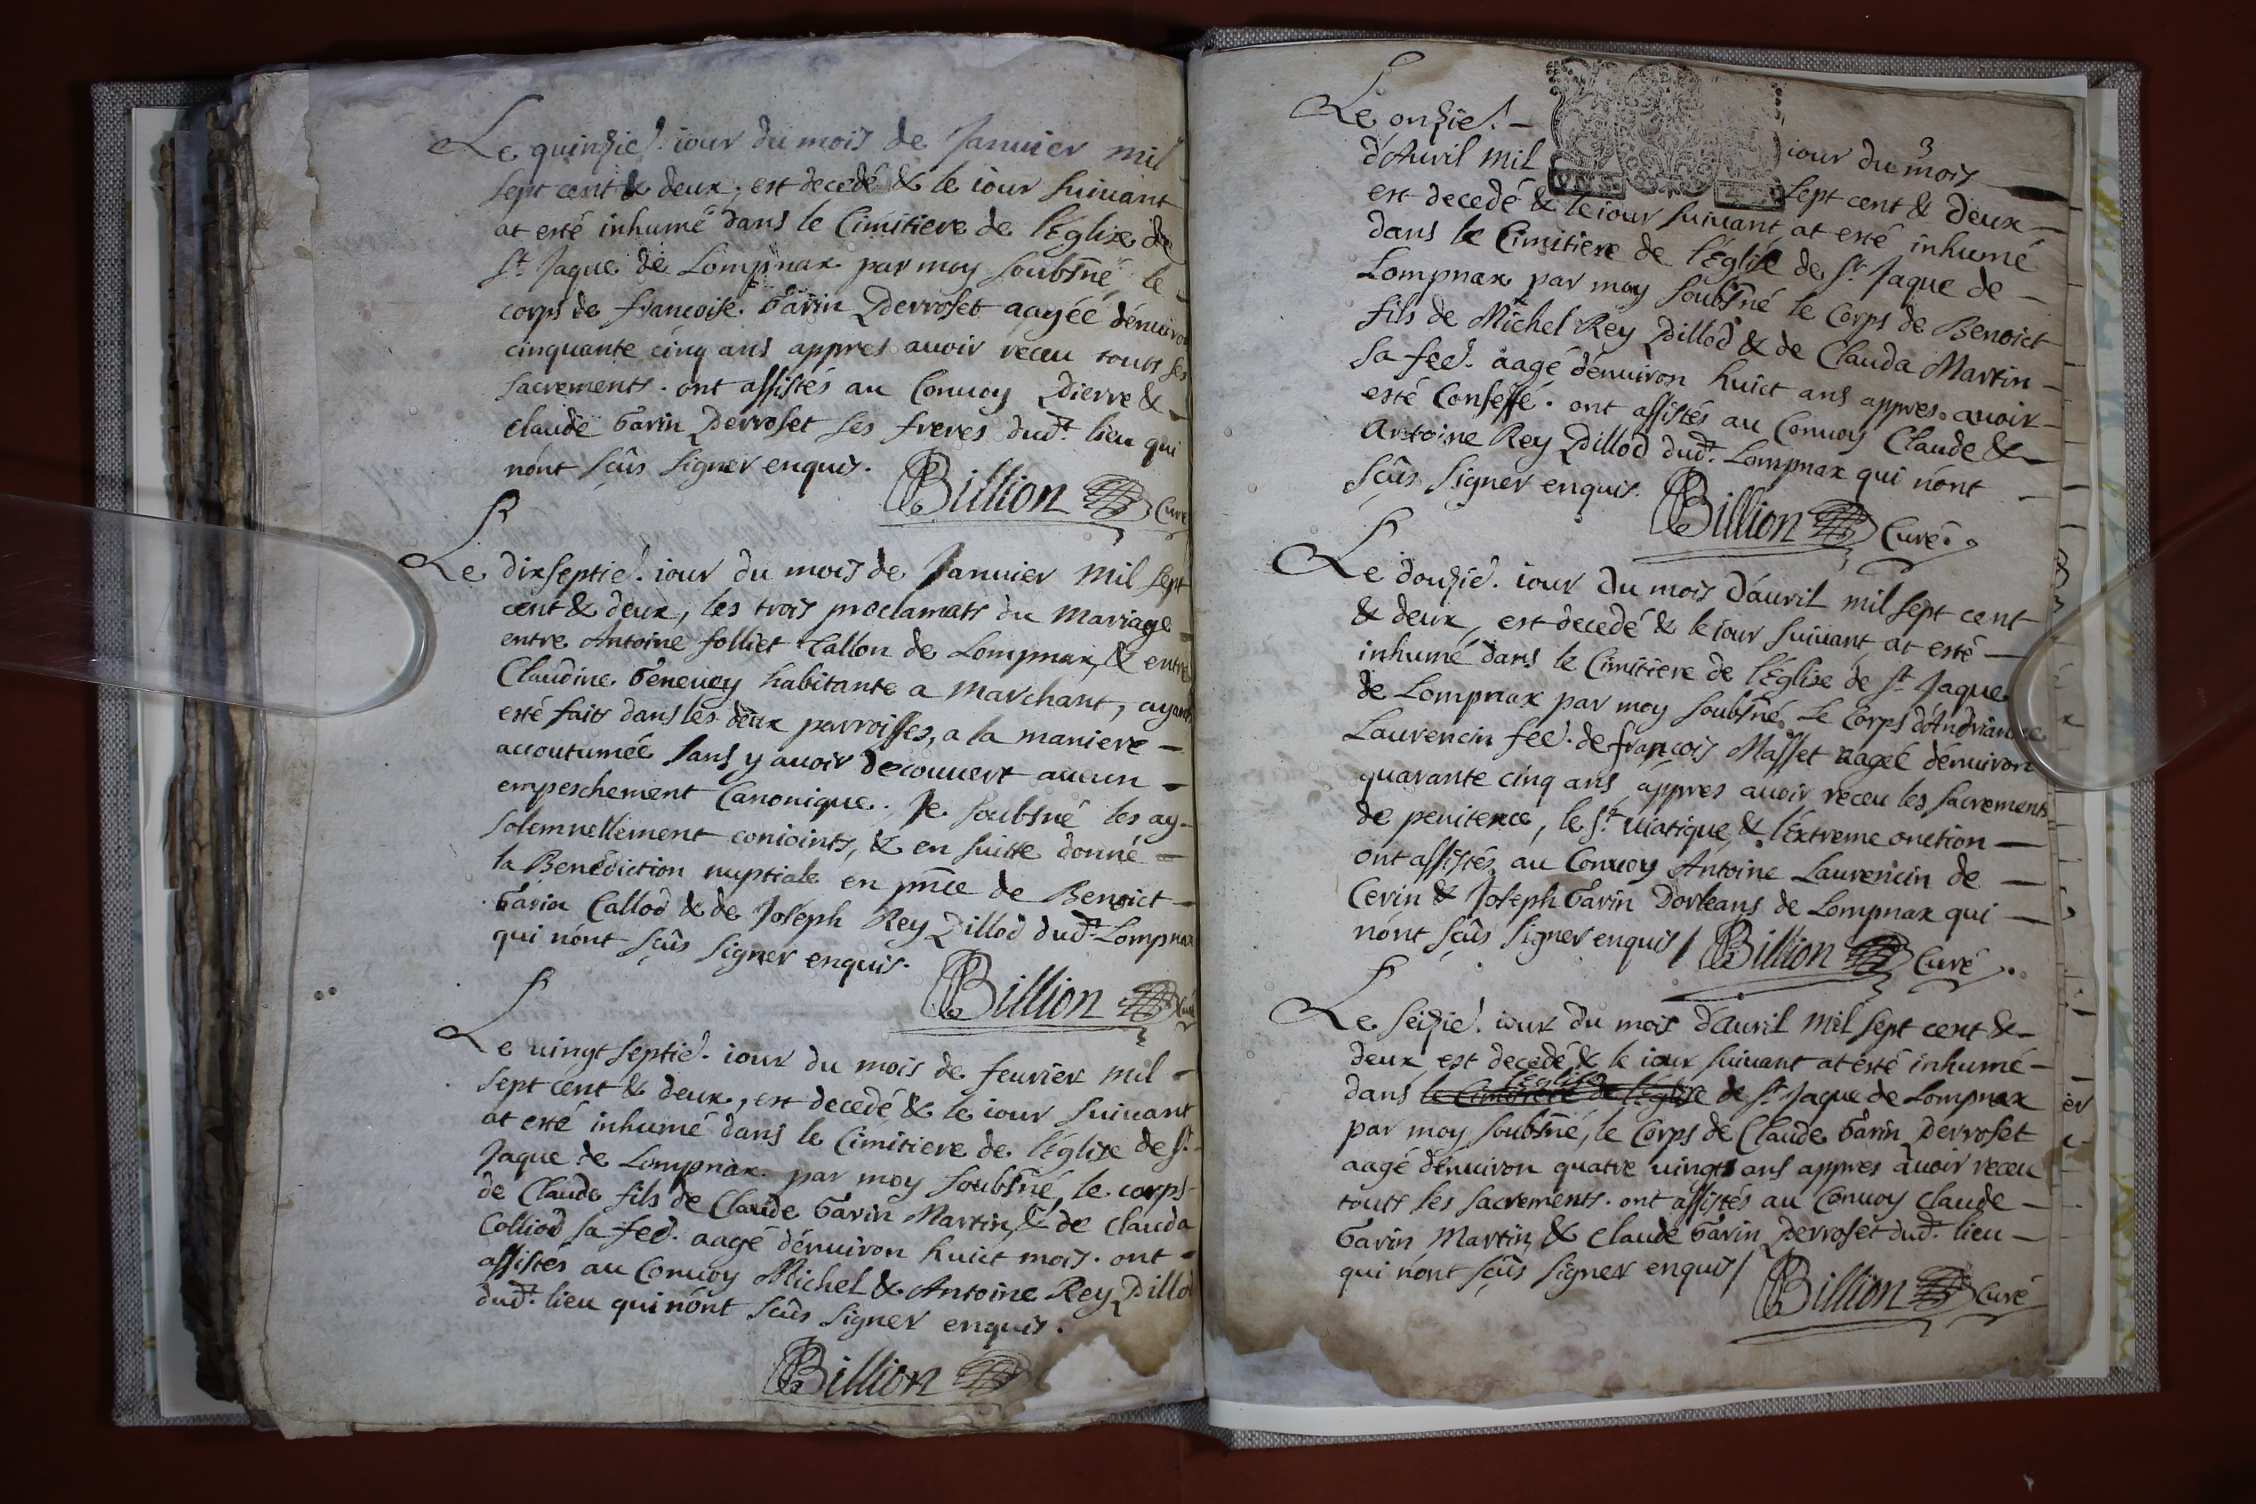 Le quinzie. iour du mois de Januier mil
sept cent & deux, est decedé & le iour suiuant
at esté inhumé dans le Cimitiere de l'Eglise de
St Jaque de Lompnax par moy soubsné, le
corps de francoise Garin Perroset aagéé dénuiron
cinquante cinq ans appres auoir receu touts ses
sacrements. ont assistés au Conuoy Pierre &
claude Garin Perroset ses freres dudt. lieu qui
nónt sçûs signer enquis.
Billion Curé
Le dixseptie. iour du mois de Januier mil sept
cent & deux, les trois proclamats du Mariage
entre Antoine folliet Callon de Lompnax, & entre
Claudine Geneuey habitante a Marchant, ayants
esté faits dans les deux parroisses, a la maniere
accoutumée sans y auoir découuert aucun
empeschement Canonique. Je soubsné les ay
solemnellement conioints, & en suitte donné
la Benédiction nuptiale en pnce de Benoict
Garin Callod & de Joseph Rey Pillod dudt Lompnax
qui nónt sçûs signer enquis.
Billion Curé
Le uingt septie. iour du mois de feurier mil
sept cent & deux, est decedé & le iour suiuant
at esté inhumé dans le Cimitiere de l'Eglise de St
Jaque de Lompnax par moy soubsné, le corps
de Claude fils de Claude Garin Martin, & de Clauda
Colliod sa fee. aagé dénuiron huict mois. ont
assistés au Conuoy Michel & Antoine Rey Pillod
dudt. lieu qui nónt sçûs signer enquis.
Billion
3
Le onzie. iour du mois
d'Auril mil sept cent & deux
est decedé & le iour suiuant at esté inhumé
dans le Cimitiere de l'Eglise de St Jaque de
Lompnax par moy soubsné le Corps de Benoict
fils de Michel Rey Pillod & de Clauda Martin
sa fee. aagé dénuiron huict ans appres auoir
esté Confessé. ont assistés au Conuoy Claude &
Antoine Rey Pillod dudt. Lompnax qui nónt
sçûs signer enquis.
Billion Curé.
Le douzie. iour du mois d'auril mil sept cent
& deux, est decedé & le iour suiuant, at esté
inhumé dans le Cimitiere de l'Eglise de St Jaque
de Lompnax par moy soubsné, le Corps d'Andrianne
Laurencin fée. de françois Masset aagéé dénuiron
quarante cinq ans, appres auoir receu les sacrements
de penitence, le St. Uiatique, & l'Extreme onction
ont assistés au Conuoy Antoine Laurencin de
Cerin & Joseph Garin Dorleans de Lompnax qui
nónt sçûs signer enquis / Billion Curé
Le seizie. iour du mois d'auril mil sept cent &
deux, est decedé & le iour suiuant at esté inhumé
l'Eglise
dans le Cimitiere de l'Eglise de St Jaque de Lompnax
par moy soubsné, le Corps de Claude Garin Perroset
aagé dénuiron quatre uingts ans appres auoir receu
touts les sacrements. ont assistés au Conuoy claude
Garin Martin, & Claude Garin Perroset dudt. lieu
qui nónt sçûs signer enquis /
Billion Curé